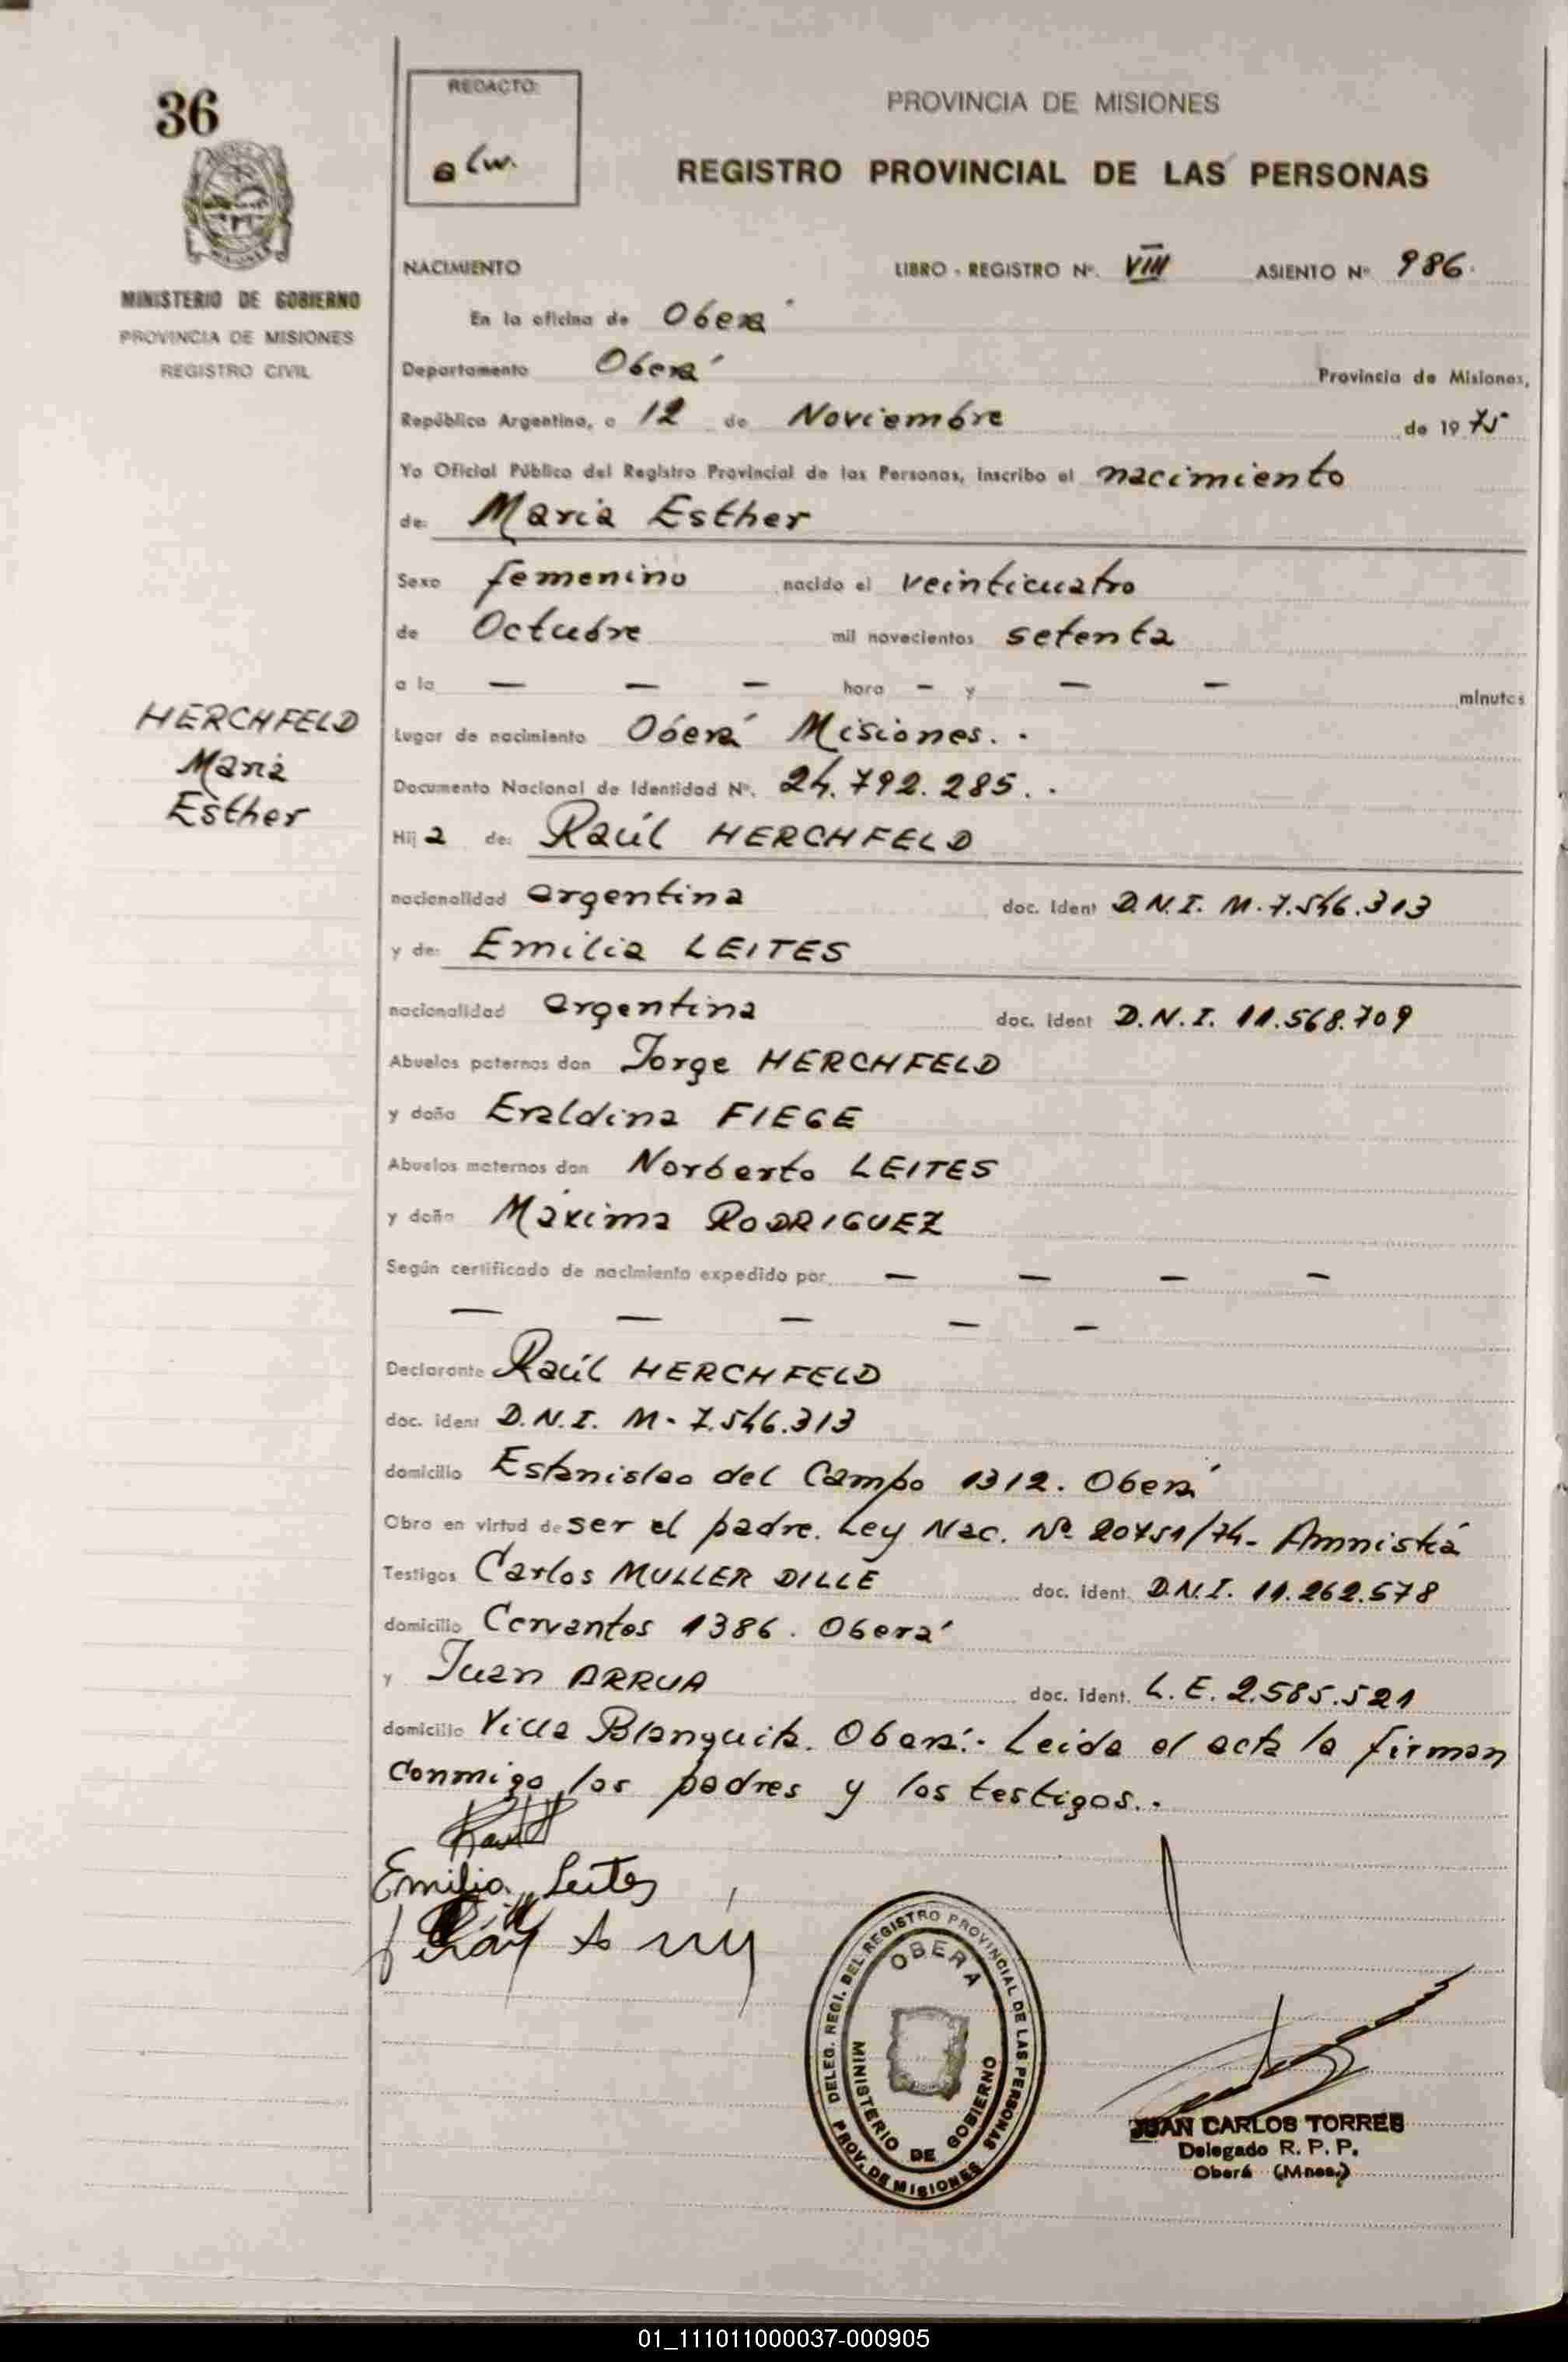 36
MINISTERIO DE GOBIERNO
PROVINCIA DE MISIONES
REGISTRO CIVIL
REDACTO:
alw.
PROVINCIA DE MISIONES
REGISTRO PROVINCIAL DE LAS PERSONAS
NACIMIENTO LIBRO - REGISTRO Nº. VIII ASIENTO Nº 986.
En la oficina de Oberá
Departamento Oberá Provincia de Misiones,
República Argentina, a 12 de Noviembre de 1975
Yo Oficial Público del Registro Provincial de las Personas, inscribo el nacimiento
de: Maria Esther
Sexo femenino nacido el veinticuatro
de Octubre mil novecientos setenta
a la — — — hora — y — — minutos
HERCHFELD
Maria
Esther
Lugar de nacimiento Oberá Misiones. .
Documento Nacional de Identidad Nº. 24.792.285. .
Hija de: Raúl HERCHFELD
nacionalidad argentina doc. Ident D.N.I. M. 7.546.313
y de: Emilia LEITES
nacionalidad argentina doc. ident D.N.I. 11.568.709
Abuelos paternos don Jorge HERCHFELD
y doña Eraldina FIEGE
Abuelos maternos don Norberto LEITES
y doña Máxima RODRIGUEZ
Según certificado de nacimiento expedido por — — — —
— — — — —
Declarante Raúl HERCHFELD
doc. ident D.N.I. M- 7.546.313
domicilio Estanislao del Campo 1312. Oberá
Obra en virtud de ser el padre. Ley Nac. Nº 20751/74- Amnistía
Testigos Carlos MULLER DILLE doc. ident. D.N.I. 11.262.578
domicilio Cervantes 1386. Oberá
y Juan ARRUA doc. ident. L.E. 2.585.521
domicilio Villa Blanquita. Oberá.- Leida el acta la firman
conmigo los padres y los testigos. .
Emilia Leites
DELEG. REGI. DEL REGISTRO PROVINCIAL DE LAS PERSONAS
OBERA
MINISTERIO DE GOBIERNO
PROV. DE MISIONES
JUAN CARLOS TORRES
Delegado R. P. P.
Oberá (Mnes.)
01_111011000037-000905